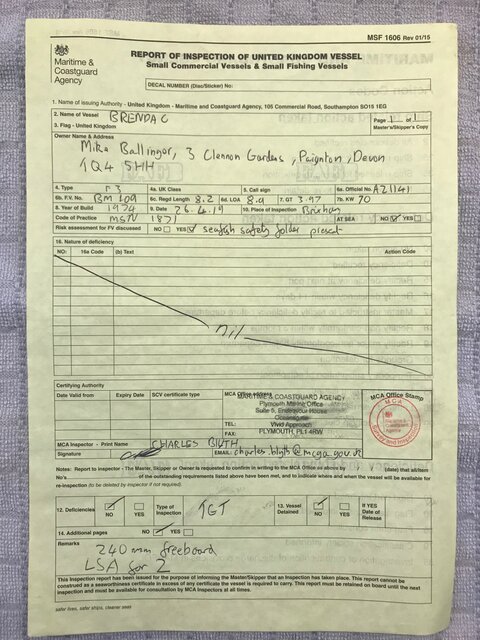 MSF 1606 Rev 01/15
Maritime &
Coastguard
Agency
REPORT OF INSPECTION OF UNITED KINGDOM VESSEL
Small Commercial Vessels & Small Fishing Vessels
DECAL NUMBER (Disc/Sticker) No:
1. Name of issuing Authority - United Kingdom - Maritime and Coastguard Agency, 105 Commercial Road, Southampton SO15 1EG
2. Name of Vessel BRENDA C
3. Flag - United Kingdom
Page 1 of 1
Master's/Skipper's Copy
Owner Name & Address
Mike Ballinger, 3 Clennon Gardens, Paignton, Devon
TQ4 5HH
4. Type 4a. UK Class 5. Call sign 6a. Official No. A21141
6b. F.V. No. BM 109 6c. Regd Length 8.2 6d. LOA 8.9 7. GT 3.97 7b. KW 70
8. Year of Build 1974 9. Date 26.4.19 10. Place of Inspection Brixham
Code of Practice MSN 1871 AT SEA NO YES
Risk assessment for FV discussed NO YES seafish safety folder present
16. Nature of deficiency
NO: 16a Code (b) Text Action Code
nil
Certifying Authority
Date Valid from Expiry Date SCV certificate type
MCA Office address
MARITIME & COASTGUARD AGENCY
Plymouth Marine Office
Suite 5, Endeavour House
Oceansgate
Vivid Approach
PLYMOUTH, PL1 4RW
TEL:
FAX:
MCA Office Stamp
M.C.A.
MCA Inspector - Print Name CHARLES BLYTH
Signature EMAIL: charles.blyth@mcga.gov.uk
Notes: Report to inspector - The Master, Skipper or Owner is requested to confirm in writing to the MCA Office as above by that all/item
No's of the outstanding requirements listed above have been met, and to indicate where and when the vessel will be available for
re-inspection (to be deleted by inspector if not required).
12. Deficiencies NO YES Type of Inspection TGT 13. Vessel Detained NO YES If YES Date of Release
14. Additional pages NO YES
Remarks
240 mm freeboard
LSA for 2
This Inspection report has been issued for the purpose of informing the Master/Skipper that an Inspection has taken place. This report cannot be
construed as a seaworthiness certificate in excess of any certificate the vessel is required to carry. This report must be retained on board until the next
inspection and must be available for consultation by MCA Inspectors at all times.
safer lives, safer ships, cleaner seas